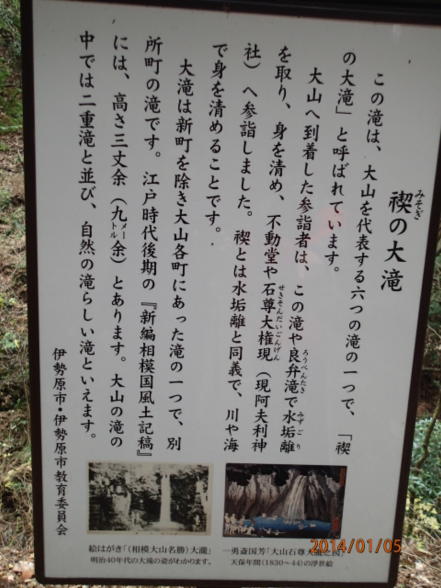 禊の大滝
みそぎ
この滝は、大山を代表する六つの滝の一つで、「禊
の大滝」と呼ばれています。
大山へ到着した参詣者は、この滝や良弁滝で水垢離
ろうべんたき
みずごり
を取り、身を清め、不動堂や石尊大権現（現阿夫利神
せきそんだいごんげん
社）へ参詣しました。禊とは水垢離と同義で、川や海
で身を清めることです。
大滝は新町を除き大山各町にあった滝の一つで、別
所町の滝です。江戸時代後期の『新編相模国風土記稿』
には、高さ三丈余（九メートル余）とあります。大山の滝の
中では二重滝と並び、自然の滝らしい滝といえます。
伊勢原市・伊勢原市教育委員会
絵はがき「（相模大山名勝）大瀧」
明治40年代の大滝の姿がわかります。
一勇斎国芳「大山石尊
天保年間（1830～44）の浮世絵
2014/01/05